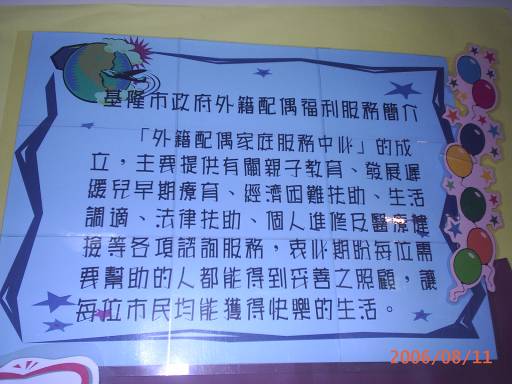 基隆市政府外籍配偶福利服務簡介
「外籍配偶家庭服務中心」的成
立，主要提供有關親子教育、發展遲
緩兒早期療育、經濟困難扶助、生活
調適、法律扶助、個人進修及醫療健
檢等各項諮詢服務，衷心期盼每位需
要幫助的人都能得到妥善之照顧，讓
每位市民均能獲得快樂的生活。
2006/08/11